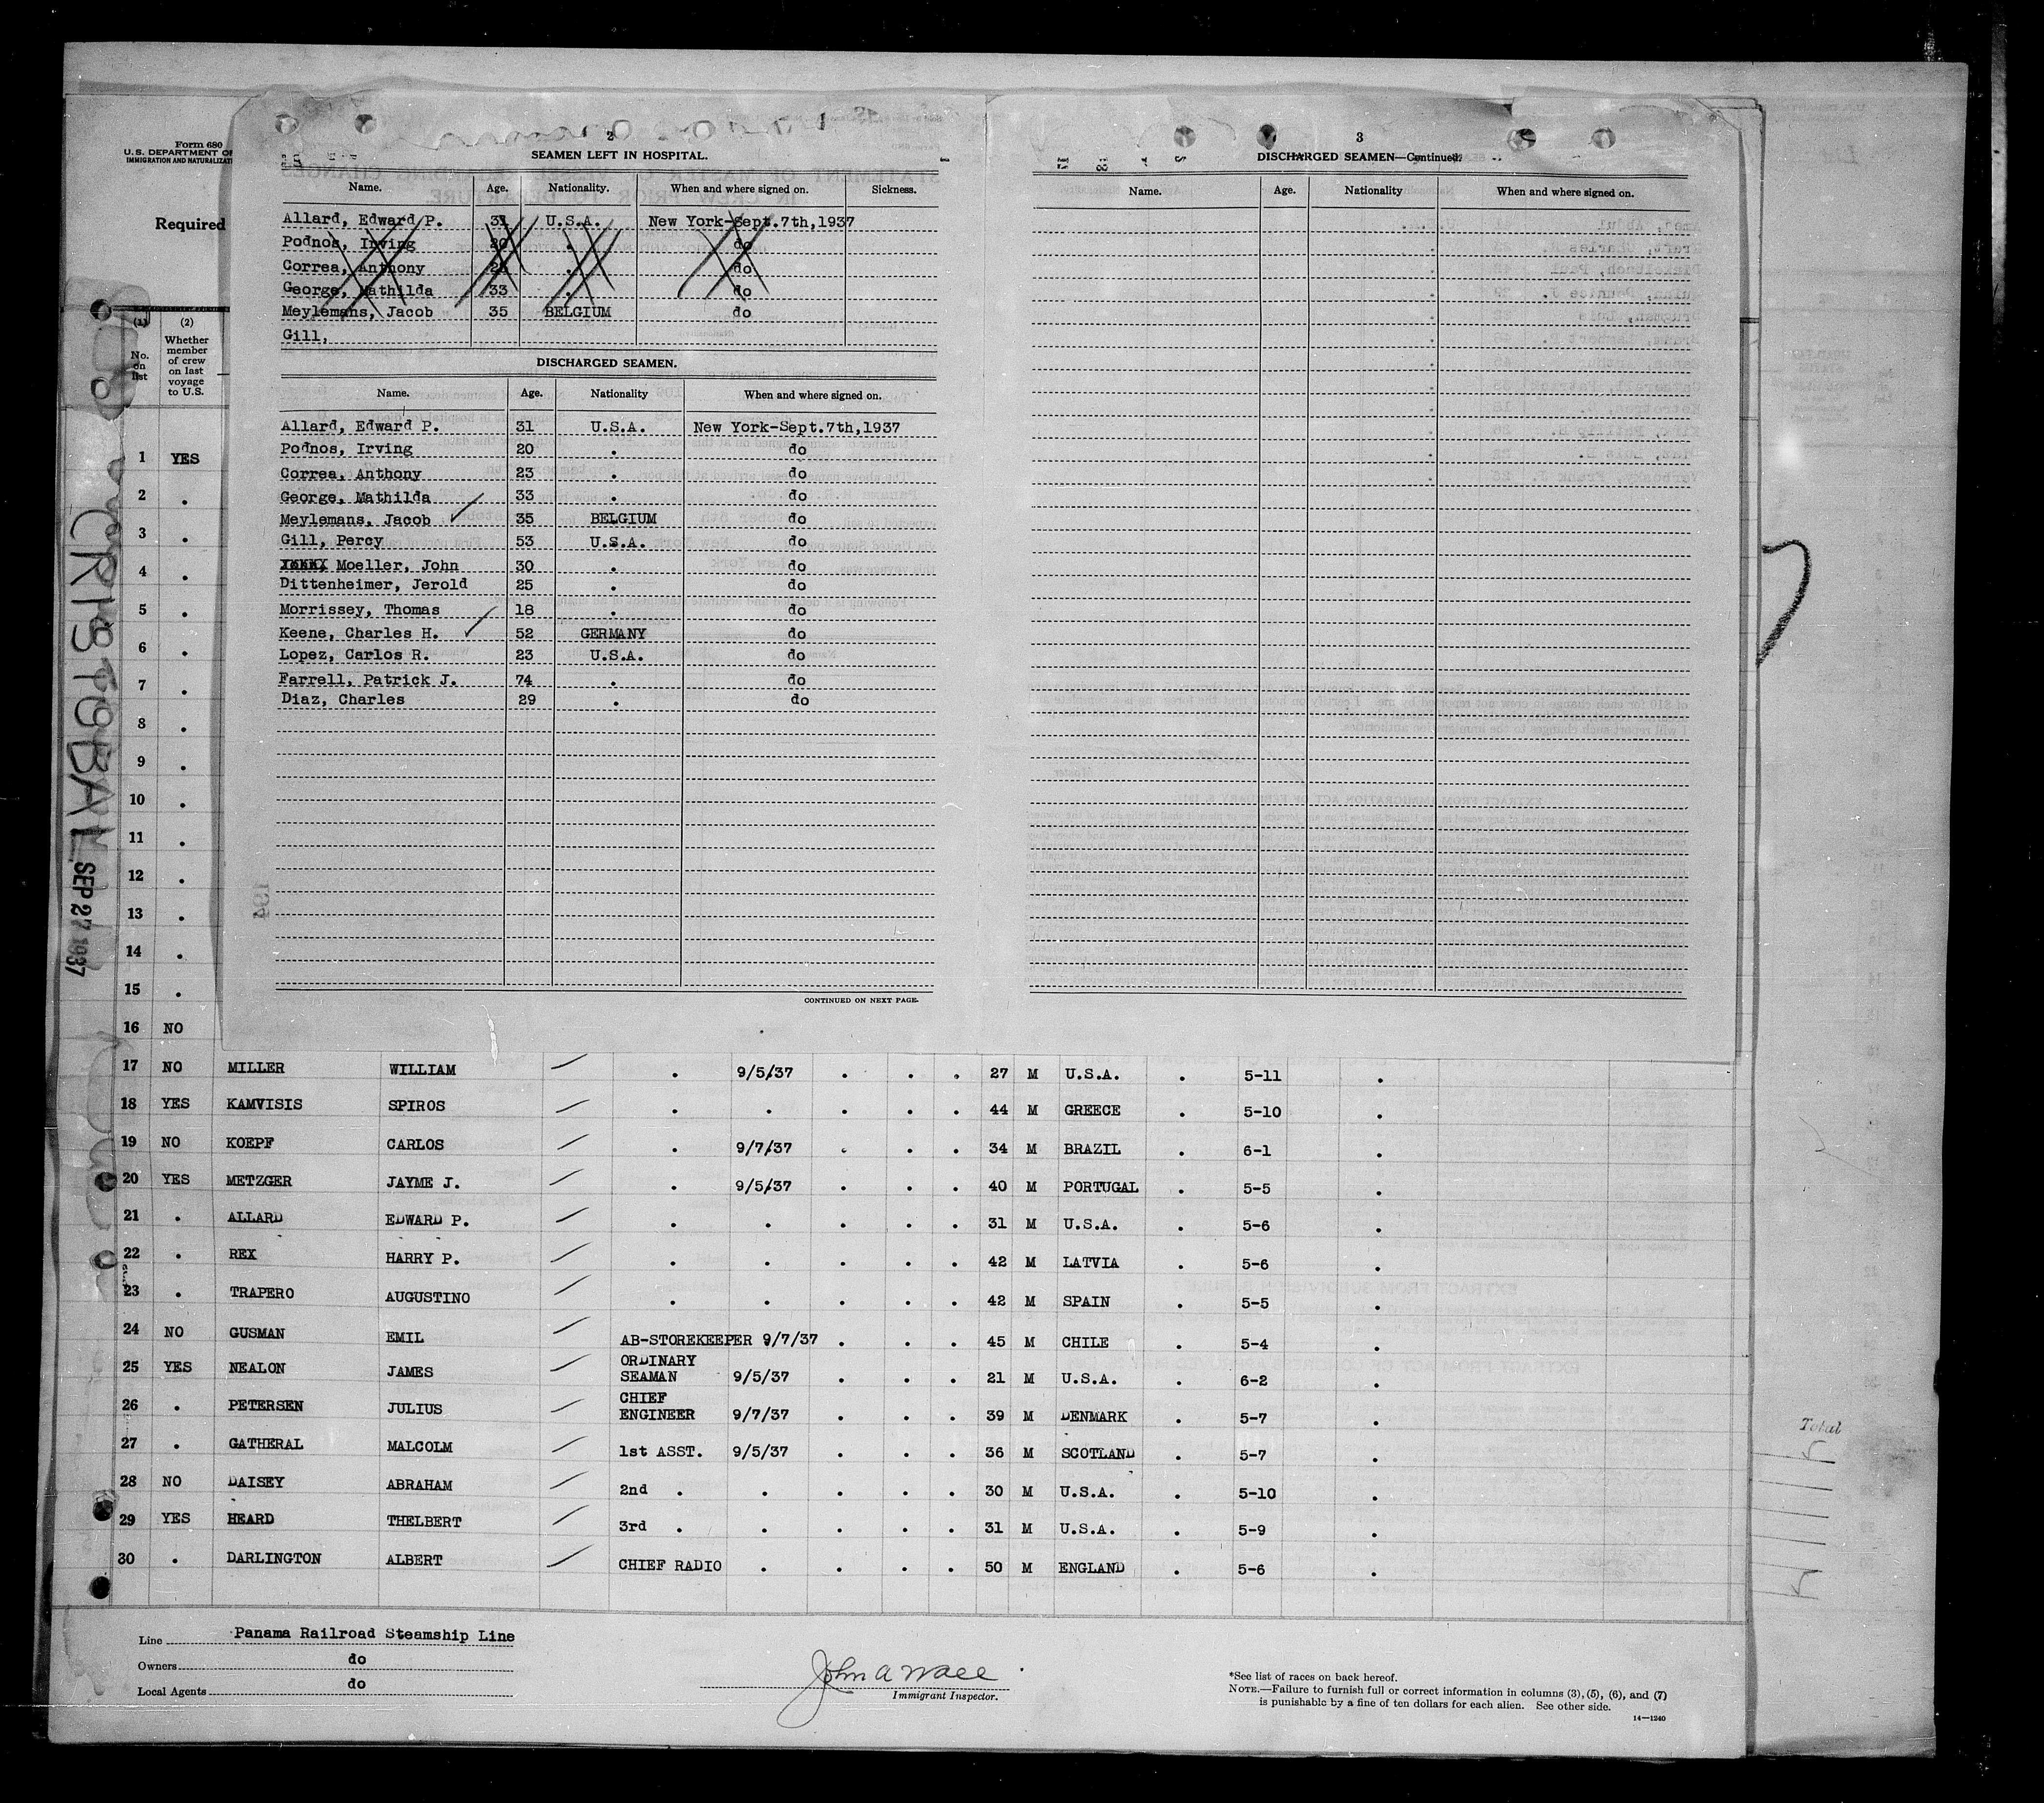 Form 680
U.S. DEPARTMENT OF
IMMIGRATION AND NATURALIZATI
Required
(1) (2)
No. on list
Whether member of crew on last voyage to U.S.
1 YES
2 .
3 .
4 .
5 .
6 .
7 .
8 .
9 .
10 .
11 .
12 .
13 .
14 .
15 .
16 NO
CRISTOBAL
SEP 27 1937
2
SEAMEN LEFT IN HOSPITAL.
Name. Age. Nationality. When and where signed on. Sickness.
Allard, Edward P. 31 U.S.A. New York-Sept.7th,1937
Podnos, Irving 20 . do
Correa, Anthony 23 . do
George, Mathilda 33 . do
Meylemans, Jacob 35 BELGIUM do
Gill,
DISCHARGED SEAMEN.
Name. Age. Nationality When and where signed on.
Allard, Edward P. 31 U.S.A. New York-Sept.7th,1937
Podnos, Irving 20 . do
Correa, Anthony 23 . do
George, Mathilda 33 . do
Meylemans, Jacob 35 BELGIUM do
Gill, Percy 53 U.S.A. do
Moeller, John 30 . do
Dittenheimer, Jerold 25 . do
Morrissey, Thomas 18 . do
Keene, Charles H. 52 GERMANY do
Lopez, Carlos R. 23 U.S.A. do
Farrell, Patrick J. 74 . do
Diaz, Charles 29 . do
CONTINUED ON NEXT PAGE.
3
DISCHARGED SEAMEN—Continued.
Name. Age. Nationality When and where signed on.
17 NO MILLER WILLIAM . 9/5/37 . . . 27 M U.S.A. . 5-11 .
18 YES KAMVISIS SPIROS . . . . . 44 M GREECE . 5-10 .
19 NO KOEPF CARLOS . 9/7/37 . . . 34 M BRAZIL . 6-1 .
20 YES METZGER JAYME J. . 9/5/37 . . . 40 M PORTUGAL . 5-5 .
21 . ALLARD EDWARD P. . . . . . 31 M U.S.A. . 5-6 .
22 . REX HARRY P. . . . . . 42 M LATVIA . 5-6 .
23 . TRAPERO AUGUSTINO . . . . . 42 M SPAIN . 5-5 .
24 NO GUSMAN EMIL AB-STOREKEEPER 9/7/37 . . . 45 M CHILE . 5-4 .
25 YES NEALON JAMES ORDINARY SEAMAN 9/5/37 . . . 21 M U.S.A. . 6-2 .
26 . PETERSEN JULIUS CHIEF ENGINEER 9/7/37 . . . 39 M DENMARK . 5-7 .
27 . GATHERAL MALCOLM 1st ASST. 9/5/37 . . . 36 M SCOTLAND . 5-7 .
28 NO DAISEY ABRAHAM 2nd . . . . . 30 M U.S.A. . 5-10 .
29 YES HEARD THELBERT 3rd . . . . . 31 M U.S.A. . 5-9 .
30 . DARLINGTON ALBERT CHIEF RADIO . . . . 50 M ENGLAND . 5-6 .
Total
Line Panama Railroad Steamship Line
Owners do
Local Agents do
John A Wall
Immigrant Inspector.
*See list of races on back hereof.
NOTE.—Failure to furnish full or correct information in columns (3), (5), (6), and (7)
is punishable by a fine of ten dollars for each alien. See other side.
14—1240